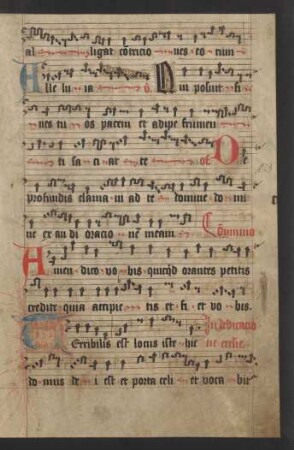 al ligat cōtricio nes eorum
Alle lu ia v. Qui posuit fi
nes tu os pacem et adipe frumen
ti sa ci ar te of De
profundis clama ui ad te domine do mi
ne ex au di oracio nē meam Cōmunio
Amen dico vo bis quicqđ orantes petitis
credite quia accipie tis et fi et vo bis
In dedicacio
Terribilis est locus iste hic ne ecclie
do mus de i est et porta celi et voca bit